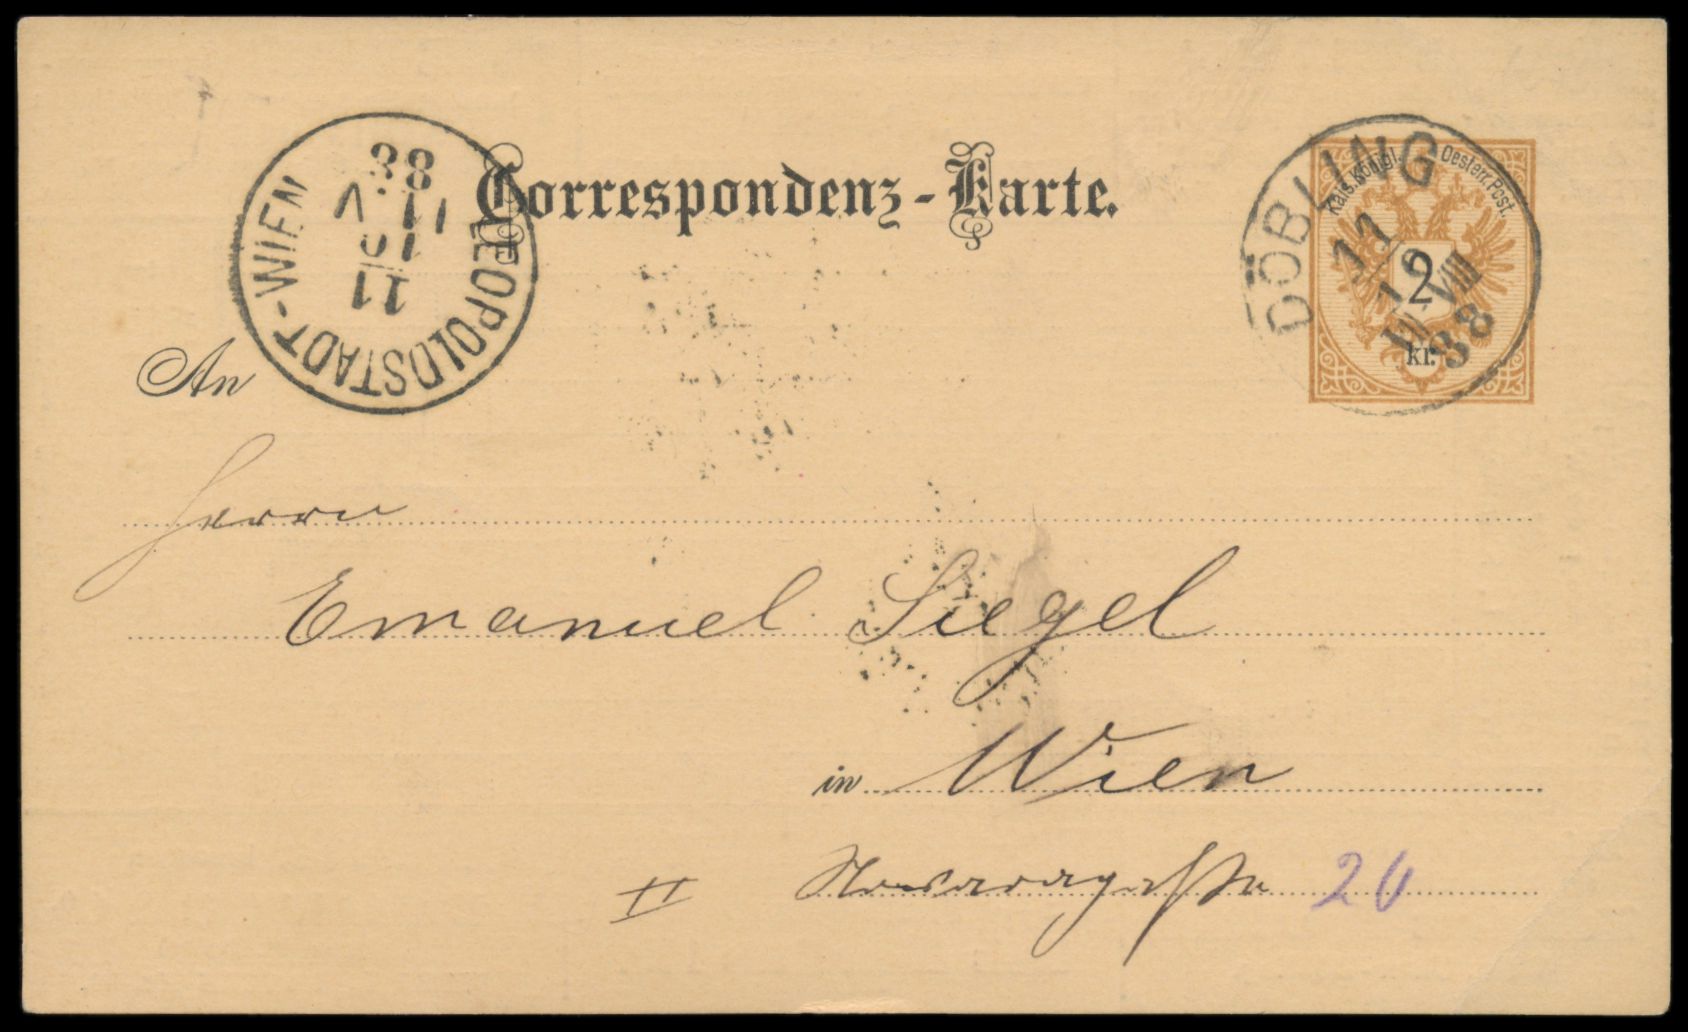 Correspondenz-Karte.
LEOPOLDSTADT-WIEN
11
10
11.V
88
DÖBLING
11
10
88
Kais. Königl. Oesterr. Post.
2
kr.
An
Herrn
Emanuel Siegel
in Wien
II Novaragasse 20